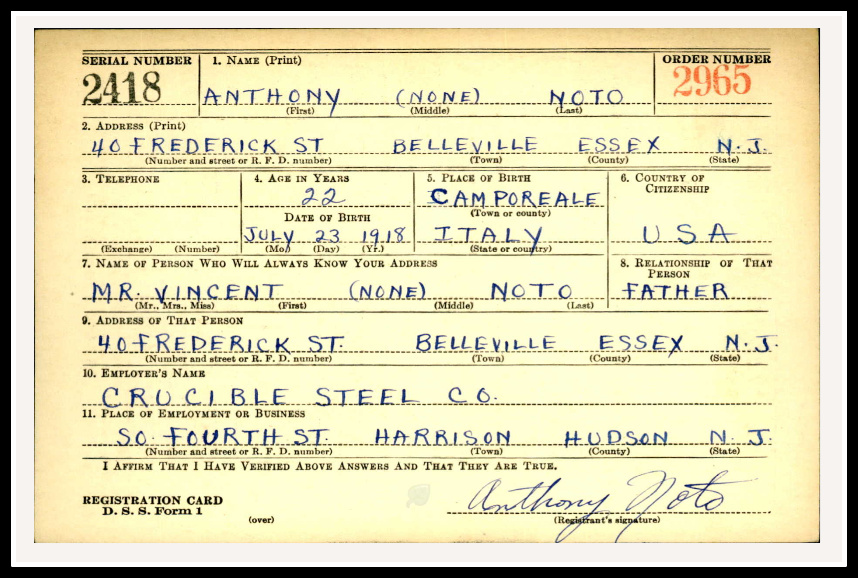 SERIAL NUMBER 1. NAME (Print) ORDER NUMBER
2418 ANTHONY (NONE) NOTO 2965
(First) (Middle) (Last)
2. ADDRESS (Print)
40 FREDERICK ST BELLEVILLE ESSEX N.J.
(Number and street or R. F. D. number) (Town) (County) (State)
3. TELEPHONE 4. AGE IN YEARS 5. PLACE OF BIRTH 6. COUNTRY OF CITIZENSHIP
22 CAMPOREALE
DATE OF BIRTH (Town or county)
JULY 23 1918 ITALY USA
(Exchange) (Number) (Mo.) (Day) (Yr.) (State or country)
7. NAME OF PERSON WHO WILL ALWAYS KNOW YOUR ADDRESS 8. RELATIONSHIP OF THAT PERSON
MR. VINCENT (NONE) NOTO FATHER
(Mr., Mrs., Miss) (First) (Middle) (Last)
9. ADDRESS OF THAT PERSON
40 FREDERICK ST. BELLEVILLE ESSEX N.J.
(Number and street or R. F. D. number) (Town) (County) (State)
10. EMPLOYER'S NAME
CRUCIBLE STEEL CO.
11. PLACE OF EMPLOYMENT OR BUSINESS
SO. FOURTH ST. HARRISON HUDSON N. J.
(Number and street or R. F. D. number) (Town) (County) (State)
I AFFIRM THAT I HAVE VERIFIED ABOVE ANSWERS AND THAT THEY ARE TRUE.
REGISTRATION CARD Anthony Noto
D. S. S. Form 1
(over) (Registrant's signature)